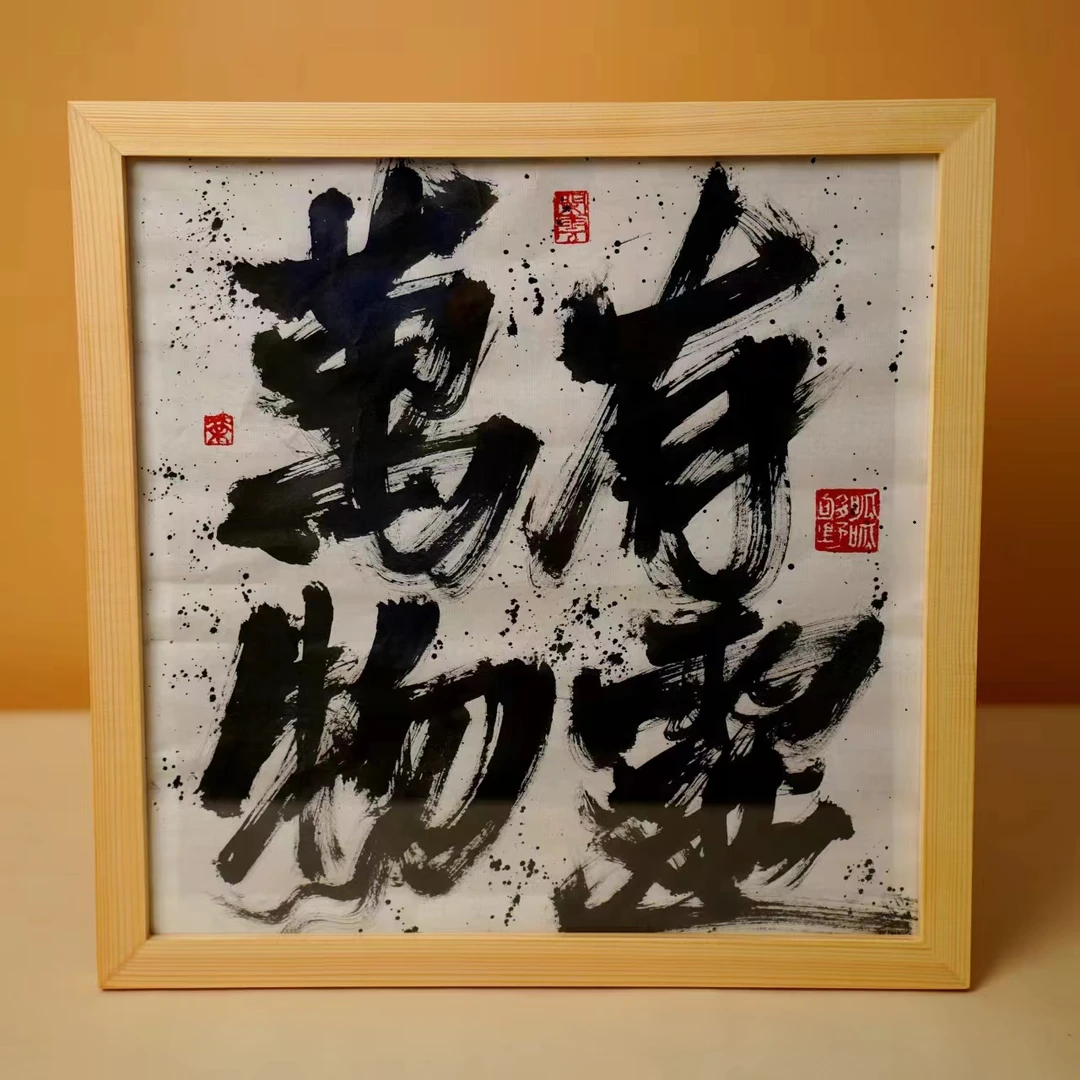 萬物
有靈